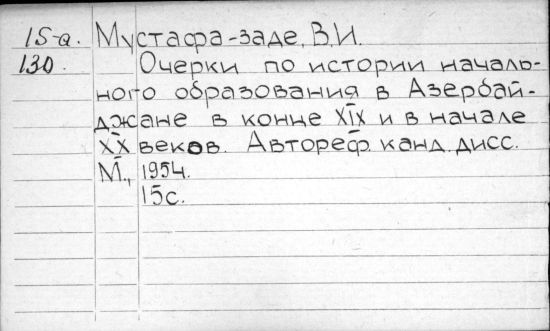 15-а. Мустафа-заде, В.И.
130. Очерки по истории началь-
ного образования в Азербай-
джане в конце XIX и в начале
XX веков. Автореф. канд. дисс.
М., 1954.
15с.